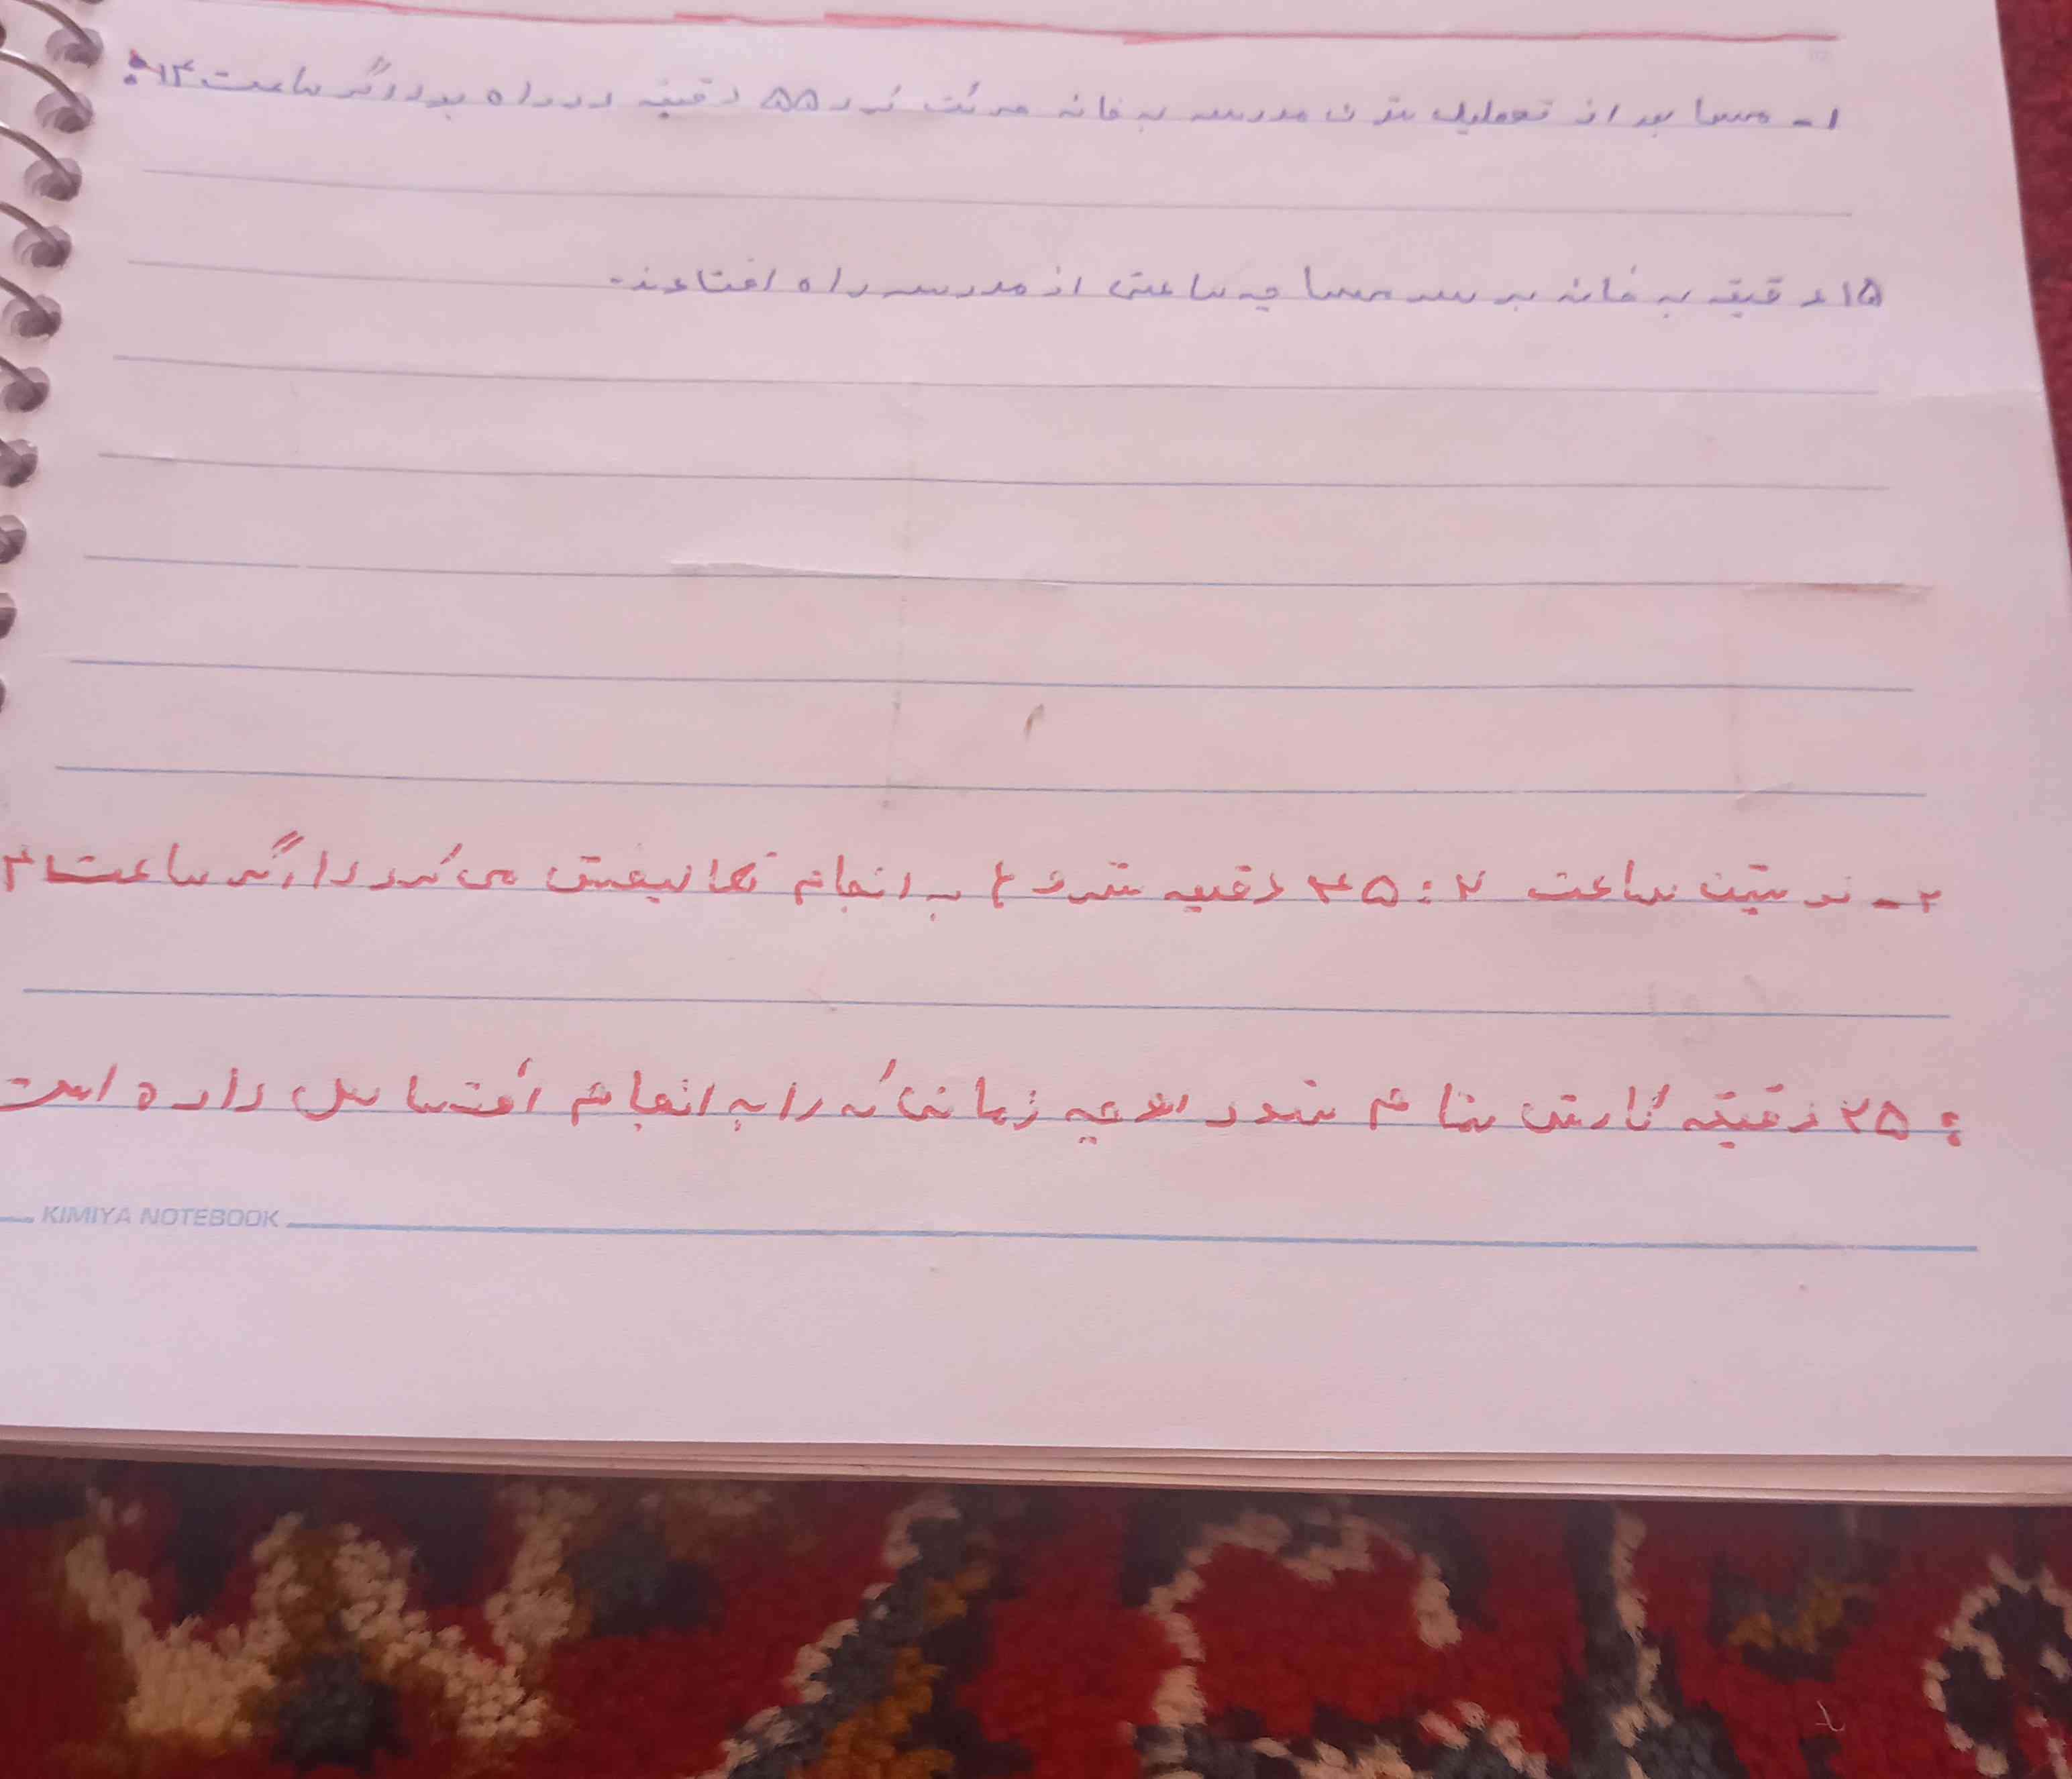 ۱ - مبسا بعد از تعطیل شدن مدرسه به خانه حرکت کرد ۵۵ دقیقه در راه بود اگر ساعت ۱۲:
۱۵ دقیقه به خانه برسد مبسا چه ساعتی از مدرسه راه افتاده
۲ - ساعت ۲ : ۴۵ دقیقه شروع به انجام تکالیفش می کرد اگر ساعت ۴
: ۲۵ دقیقه کارش تمام شود او چه زمانی که را به انجام اختصاص داده است
KIMIYA NOTEBOOK